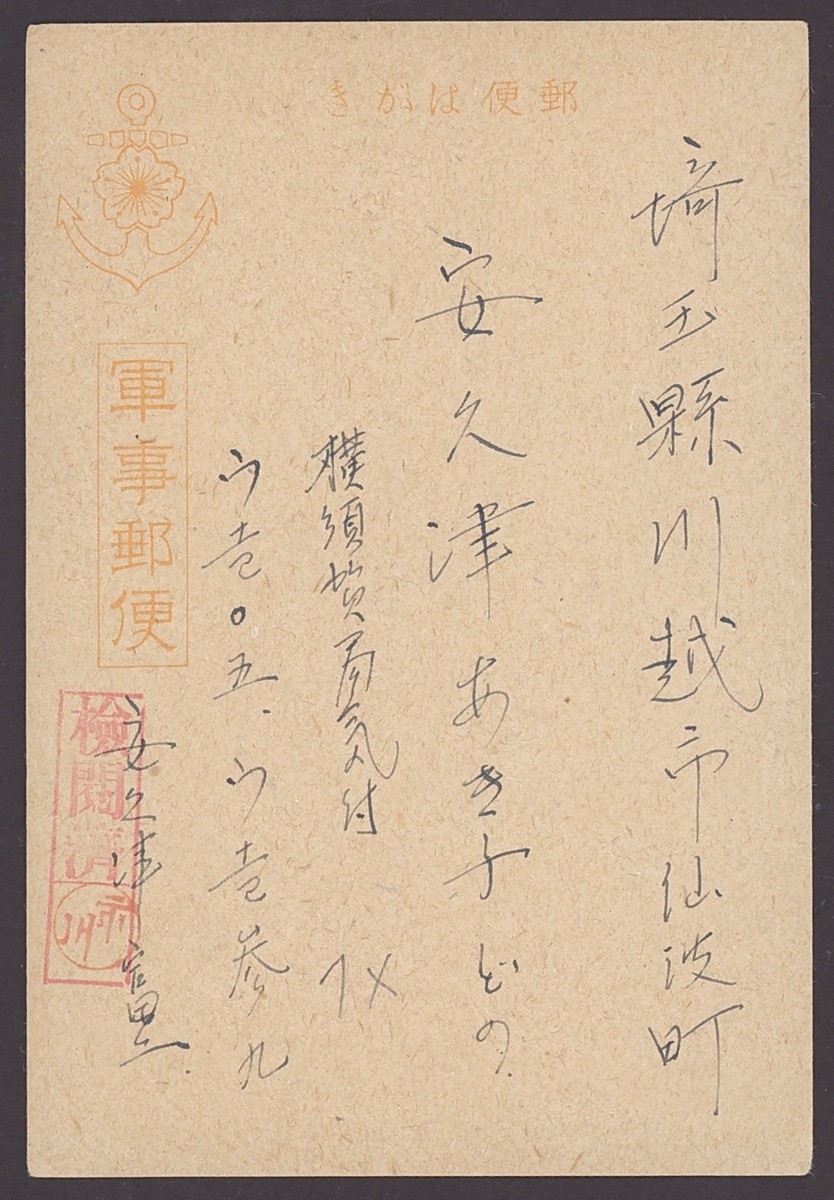 郵便はがき
埼玉縣川越市仙波町
安久津あき子どの
横須賀局気付
ウ壱〇五、ウ壱参九
安久津
軍事郵便
検閲済